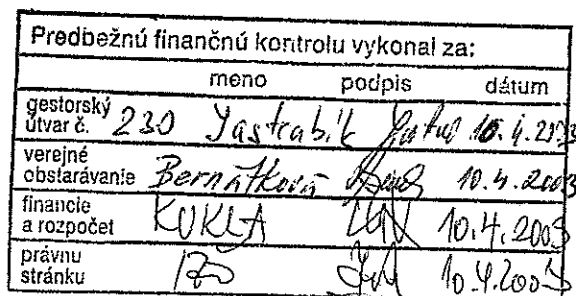 Predbežnú finančnú kontrolu vykonal za:
meno podpis dátum
gestorský
útvar č. 230 Jastrabík 10.4.2003
verejné
obstarávanie Bernátková 10.4.2003
financie
a rozpočet KUKLA 10.4.2003
právnu
stránku 10.4.2003